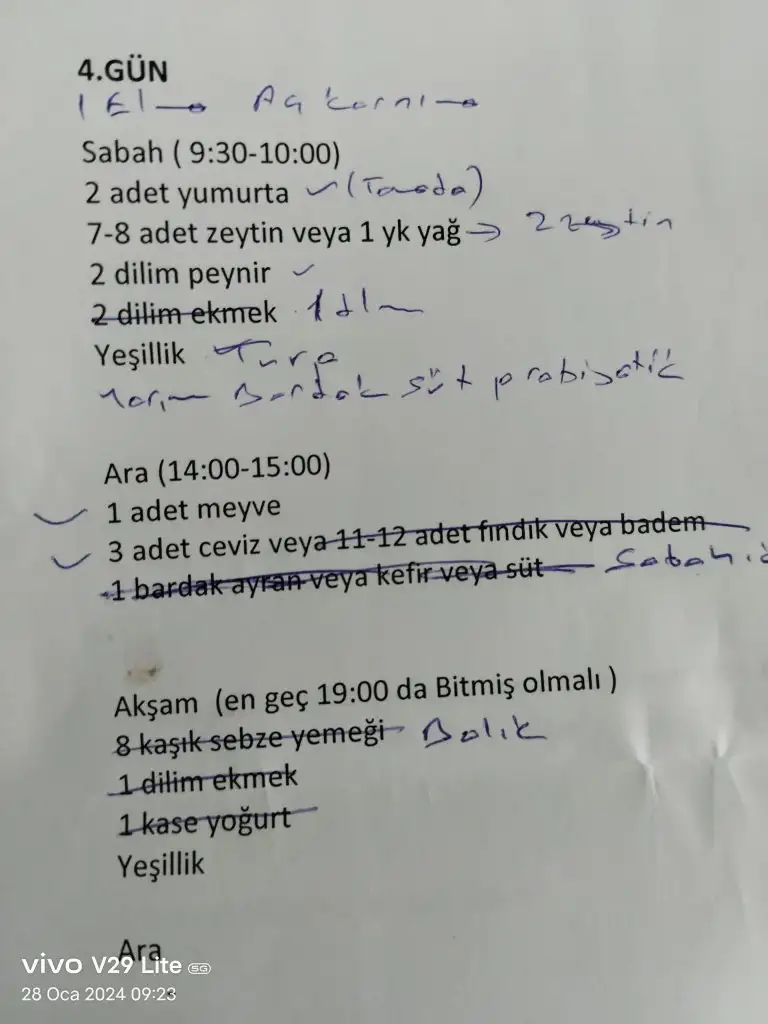 4.GÜN
1 Elma Aç karnına
Sabah ( 9:30-10:00)
2 adet yumurta (Tavada)
7-8 adet zeytin veya 1 yk yağ → 2 zeytin
2 dilim peynir
2 dilim ekmek 1 dlm
Yeşillik Turp
Yarım Bardak süt probiyotik
Ara (14:00-15:00)
1 adet meyve
3 adet ceviz veya 11-12 adet fındık veya badem
1 bardak ayran veya kefir veya süt Sabah
Akşam (en geç 19:00 da Bitmiş olmalı )
8 kaşık sebze yemeği Balık
1 dilim ekmek
1 kase yoğurt
Yeşillik
Ara
vivo V29 Lite 5G
28 Oca 2024 09:23